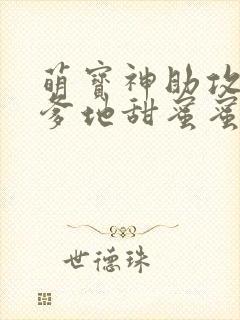 萌宝神助攻
爹地甜蜜蜜
世德珠